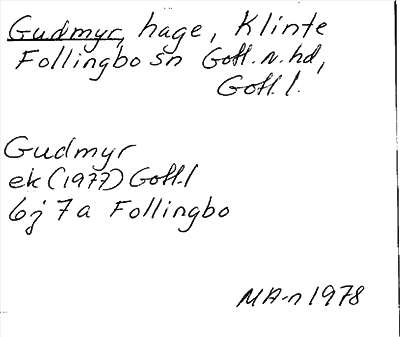 Gudmyr, hage, Klinte
Follingbo sn Gotl. n. hd,
Gotl. l.
Gudmyr
ek (1977) Gotl. l
6j 7a Follingbo
MA-n 1978